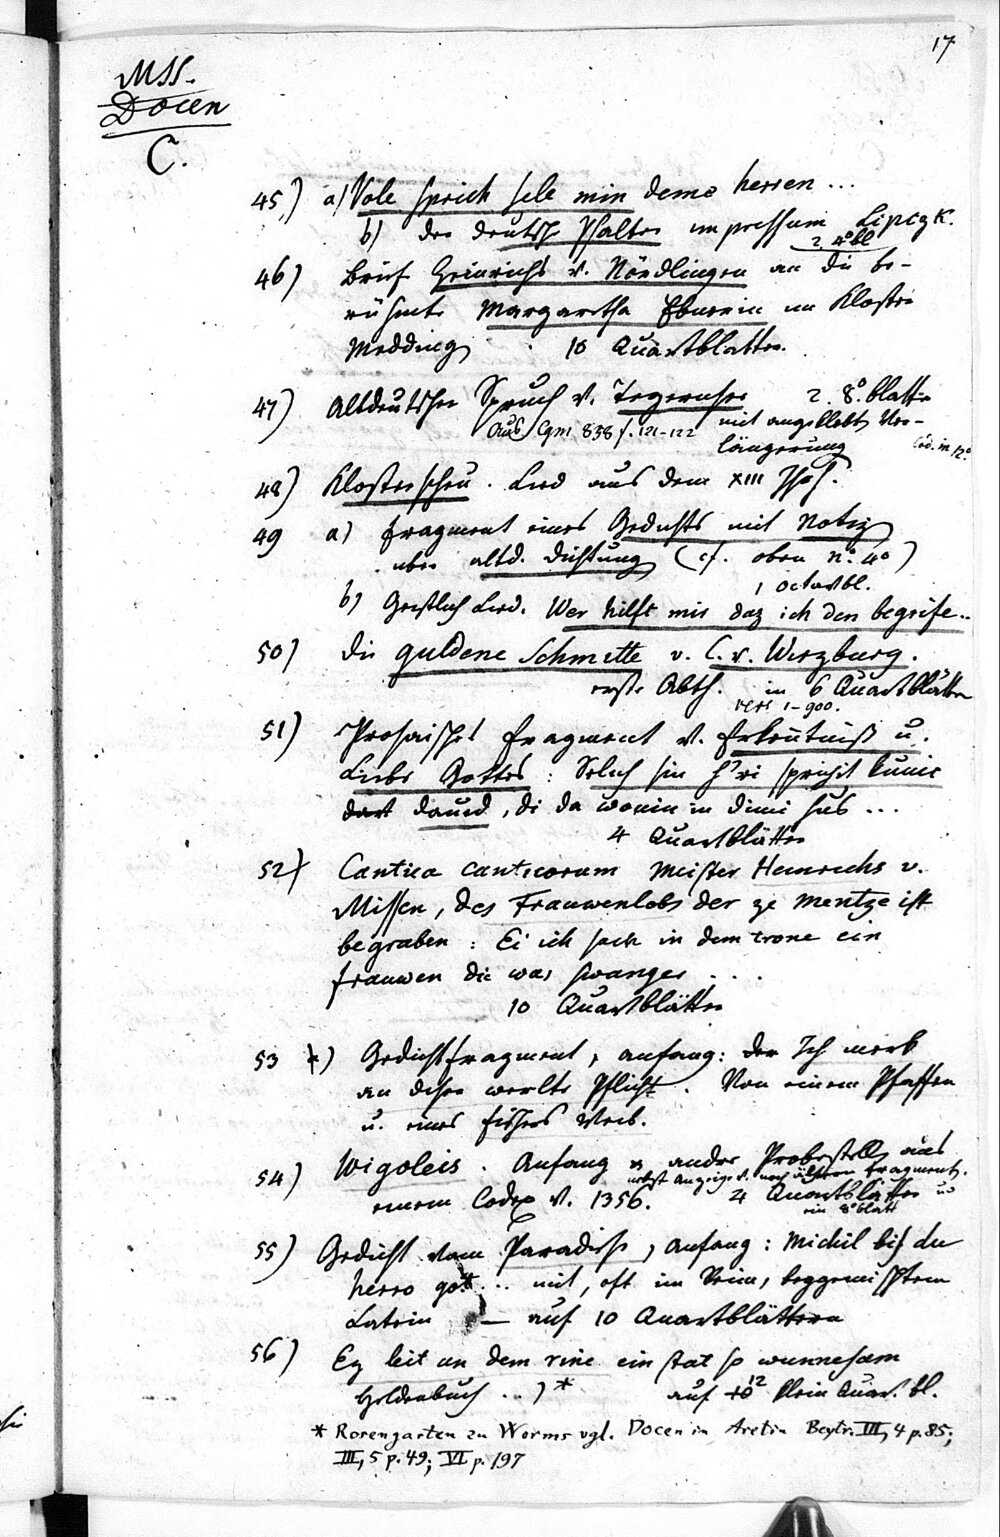 17
MSS.
Docen
C.
45) a) Vole sprich sele min deme herren ...
b) der deutsch Psalter impressum Lipczk.
2 4° bl
46) Brief Heinrichs v. Nördlingen an die be-
rühmte Margaretha Ebnerin im Kloster
Medding 10 Quartblatter.
47) Altdeutscher Spruch v. Tegernsee 2. 8°. blatter
Aus Cgm 838 f. 121-122 mit angeklebter Ver-
längerung Cod. in 12°
48) Klosterscheu. Lied aus dem XIII Jhdt.
49 a) Fragment eines Gedichts mit Notiz
über altd. Dichtung (cf. oben n°. 40)
1 octavbl.
b) Geistlich Lied. Wer hilft mir daz ich den begrife..
50) die guldene Schmitte v. C. v. Wirzburg.
erste Abth. in 6 Quartblätter
vers 1-900.
51) Prosaisches Fragment v. Erkentniß u.
Liebe Gottes: Selich sin h'ri sprichit kunic
dart dauid, di da wonin in dimi hus ...
4 Quartblätter
52) Cantica canticorum Meister Heinrichs v.
Missen, des Frauwenlobs der ze Mentze ist
begraben: Ei ich sach in dem trone ein
frauwen die was swanger ...
10 Quartblätter
53 *) Gedichtfragment, anfang: der Ich merk
an diser werlte Pflicht. Von einem Pfaffen
u. eines fischers Weib.
54) Wigoleis. Anfang u andre Probestelle aus
nebst Anzeige v. noch ältern Fragment.
einem Codex v. 1356. 4 Quartblätter und
ein 8° blatt
55) Gedicht vom Paradise, Anfang: Michil bis du
herro got .. mit, oft im Reim, beygemischtem
Latein — auf 10 Quartblättern
56) Ez leit an dem rine ein stat so wunnesam
Heldenbuch ..)* auf 10 12 klein Quar. bl.
* Rosengarten zu Worms vgl. Docen in Aretin Beytr. III, 4 p. 85;
III, 5 p. 49; VI p. 197